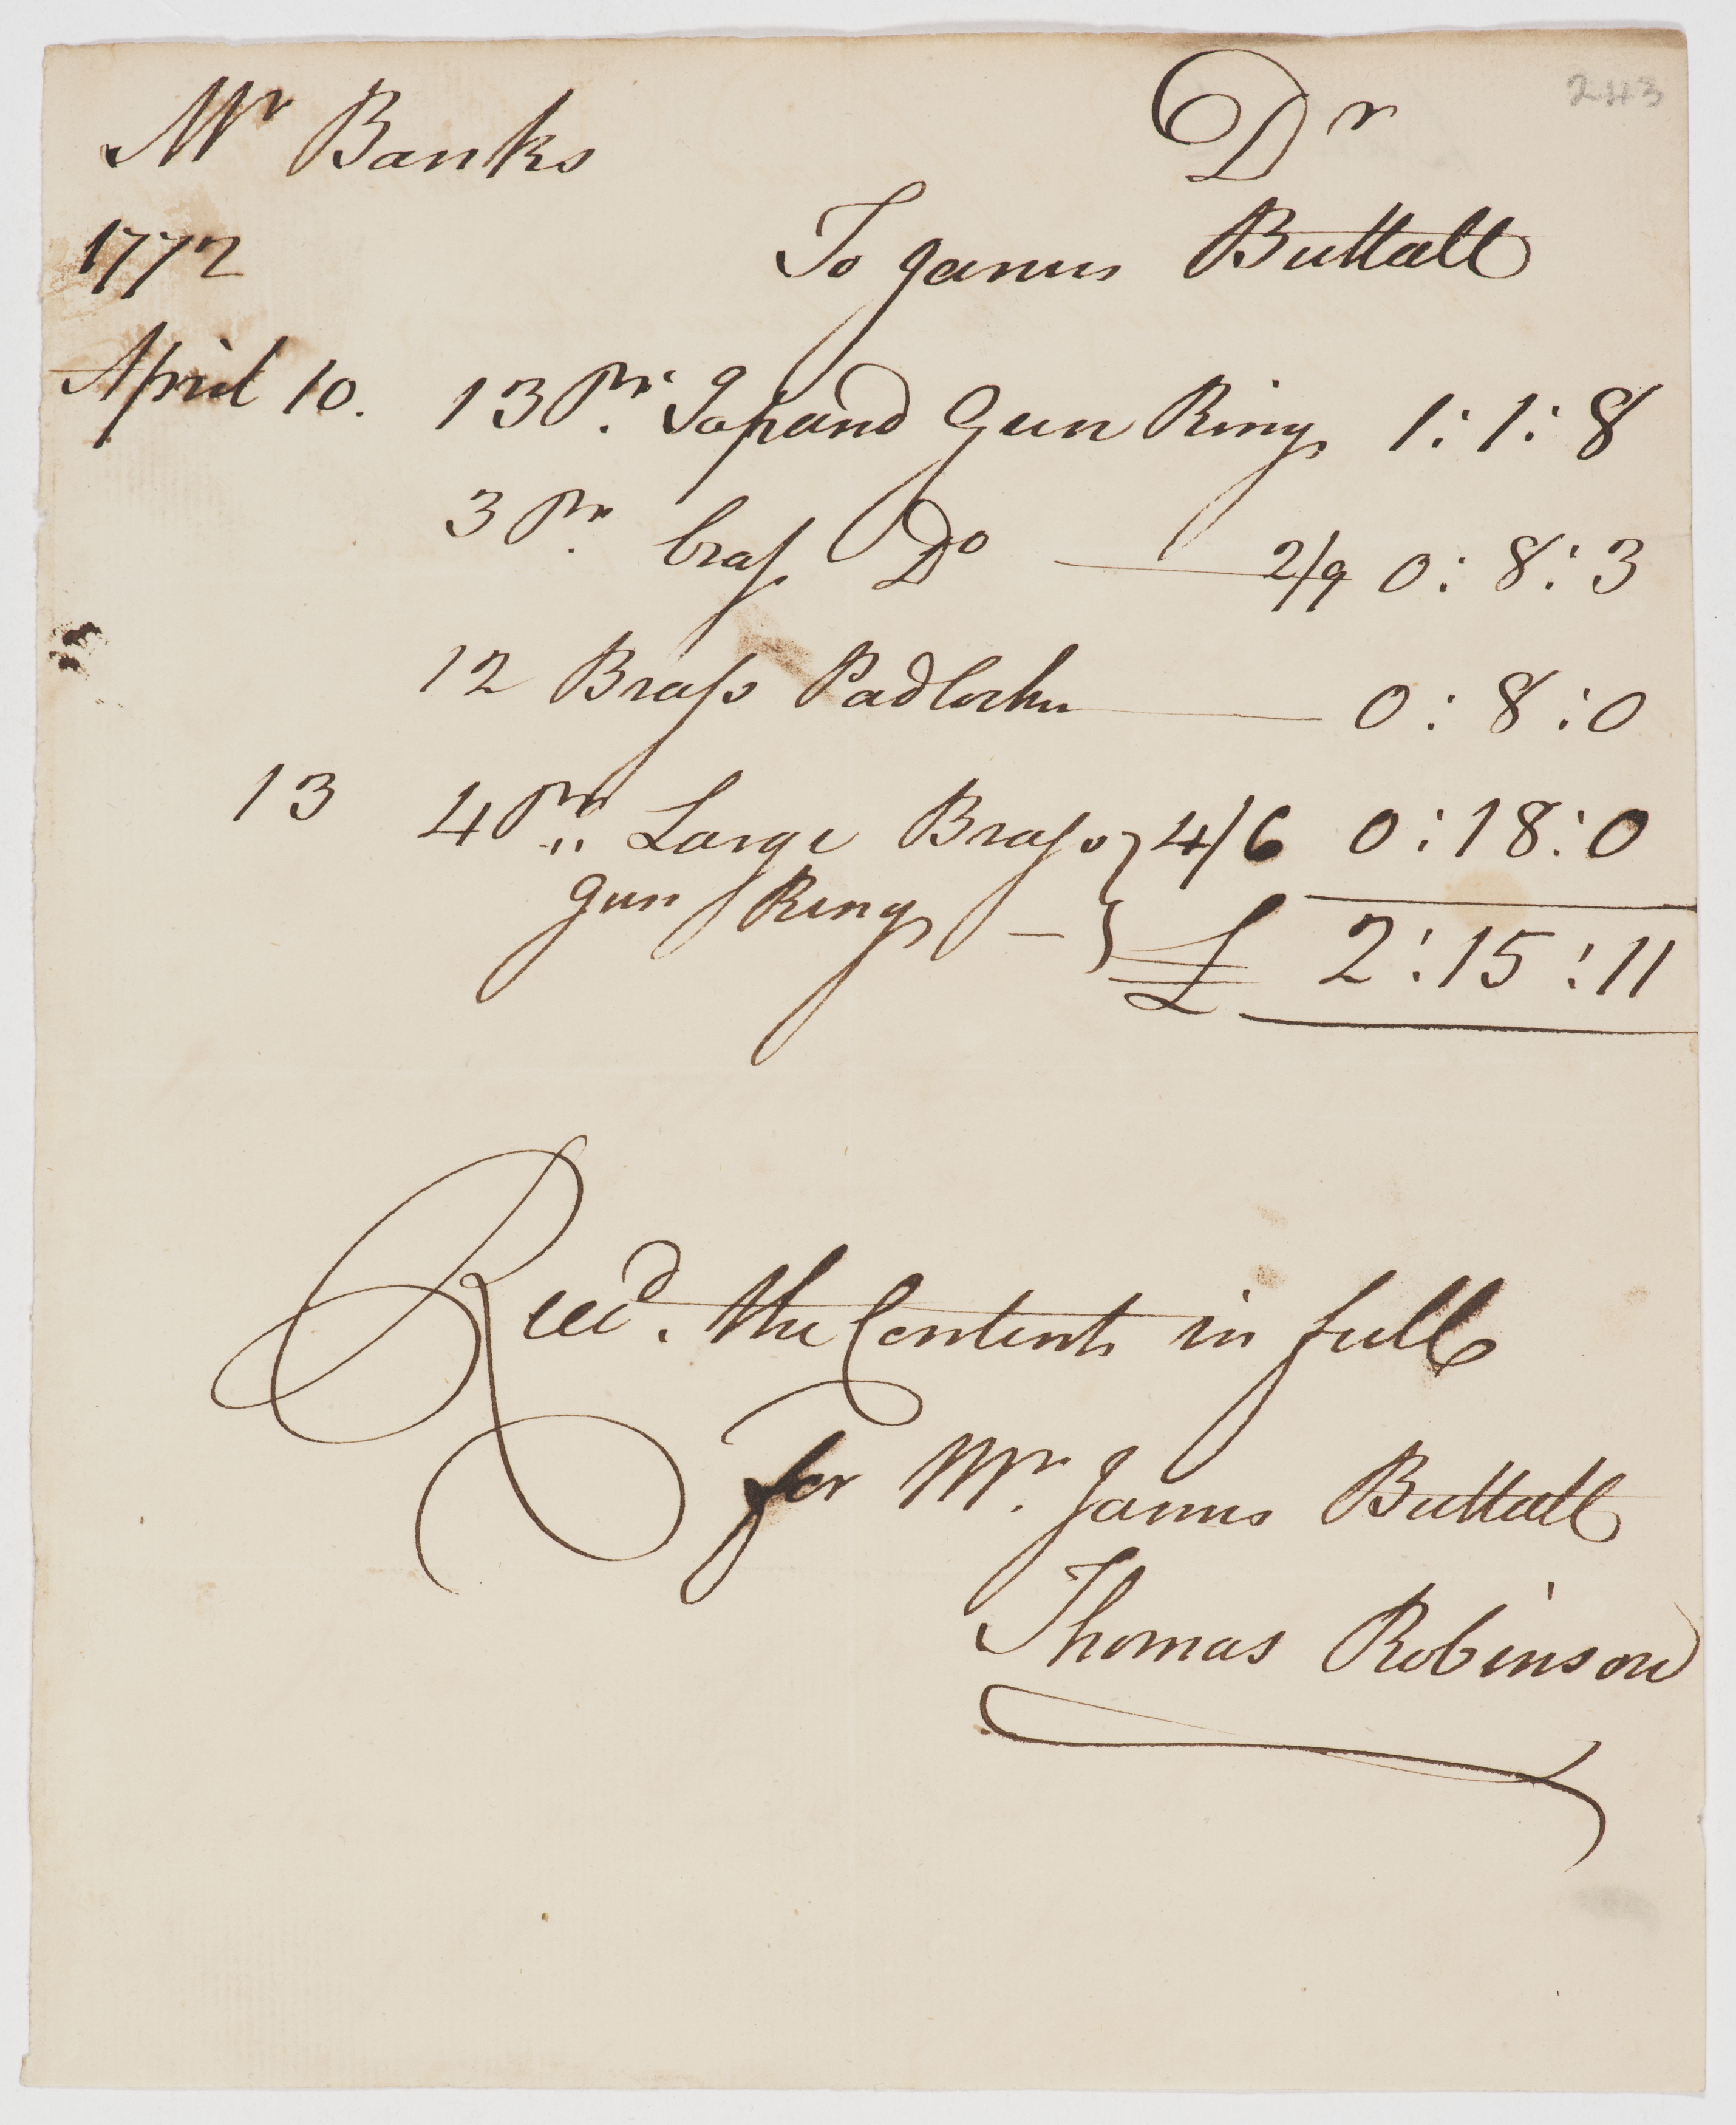 243
Mr Banks Dr
1772 To James Buttall
April 10. 13 Pr. Japand Gun Rings 1:1:8
3 Pr. brass Do 2/9 0:8:3
12 Brass Padlocks 0:8:0
13 4 Pr. Large Brass } 4/6 0:18:0
gun Rings — } £ 2:15:11
Recd. the Contents in full
for Mr. James Buttall
Thomas Robinson